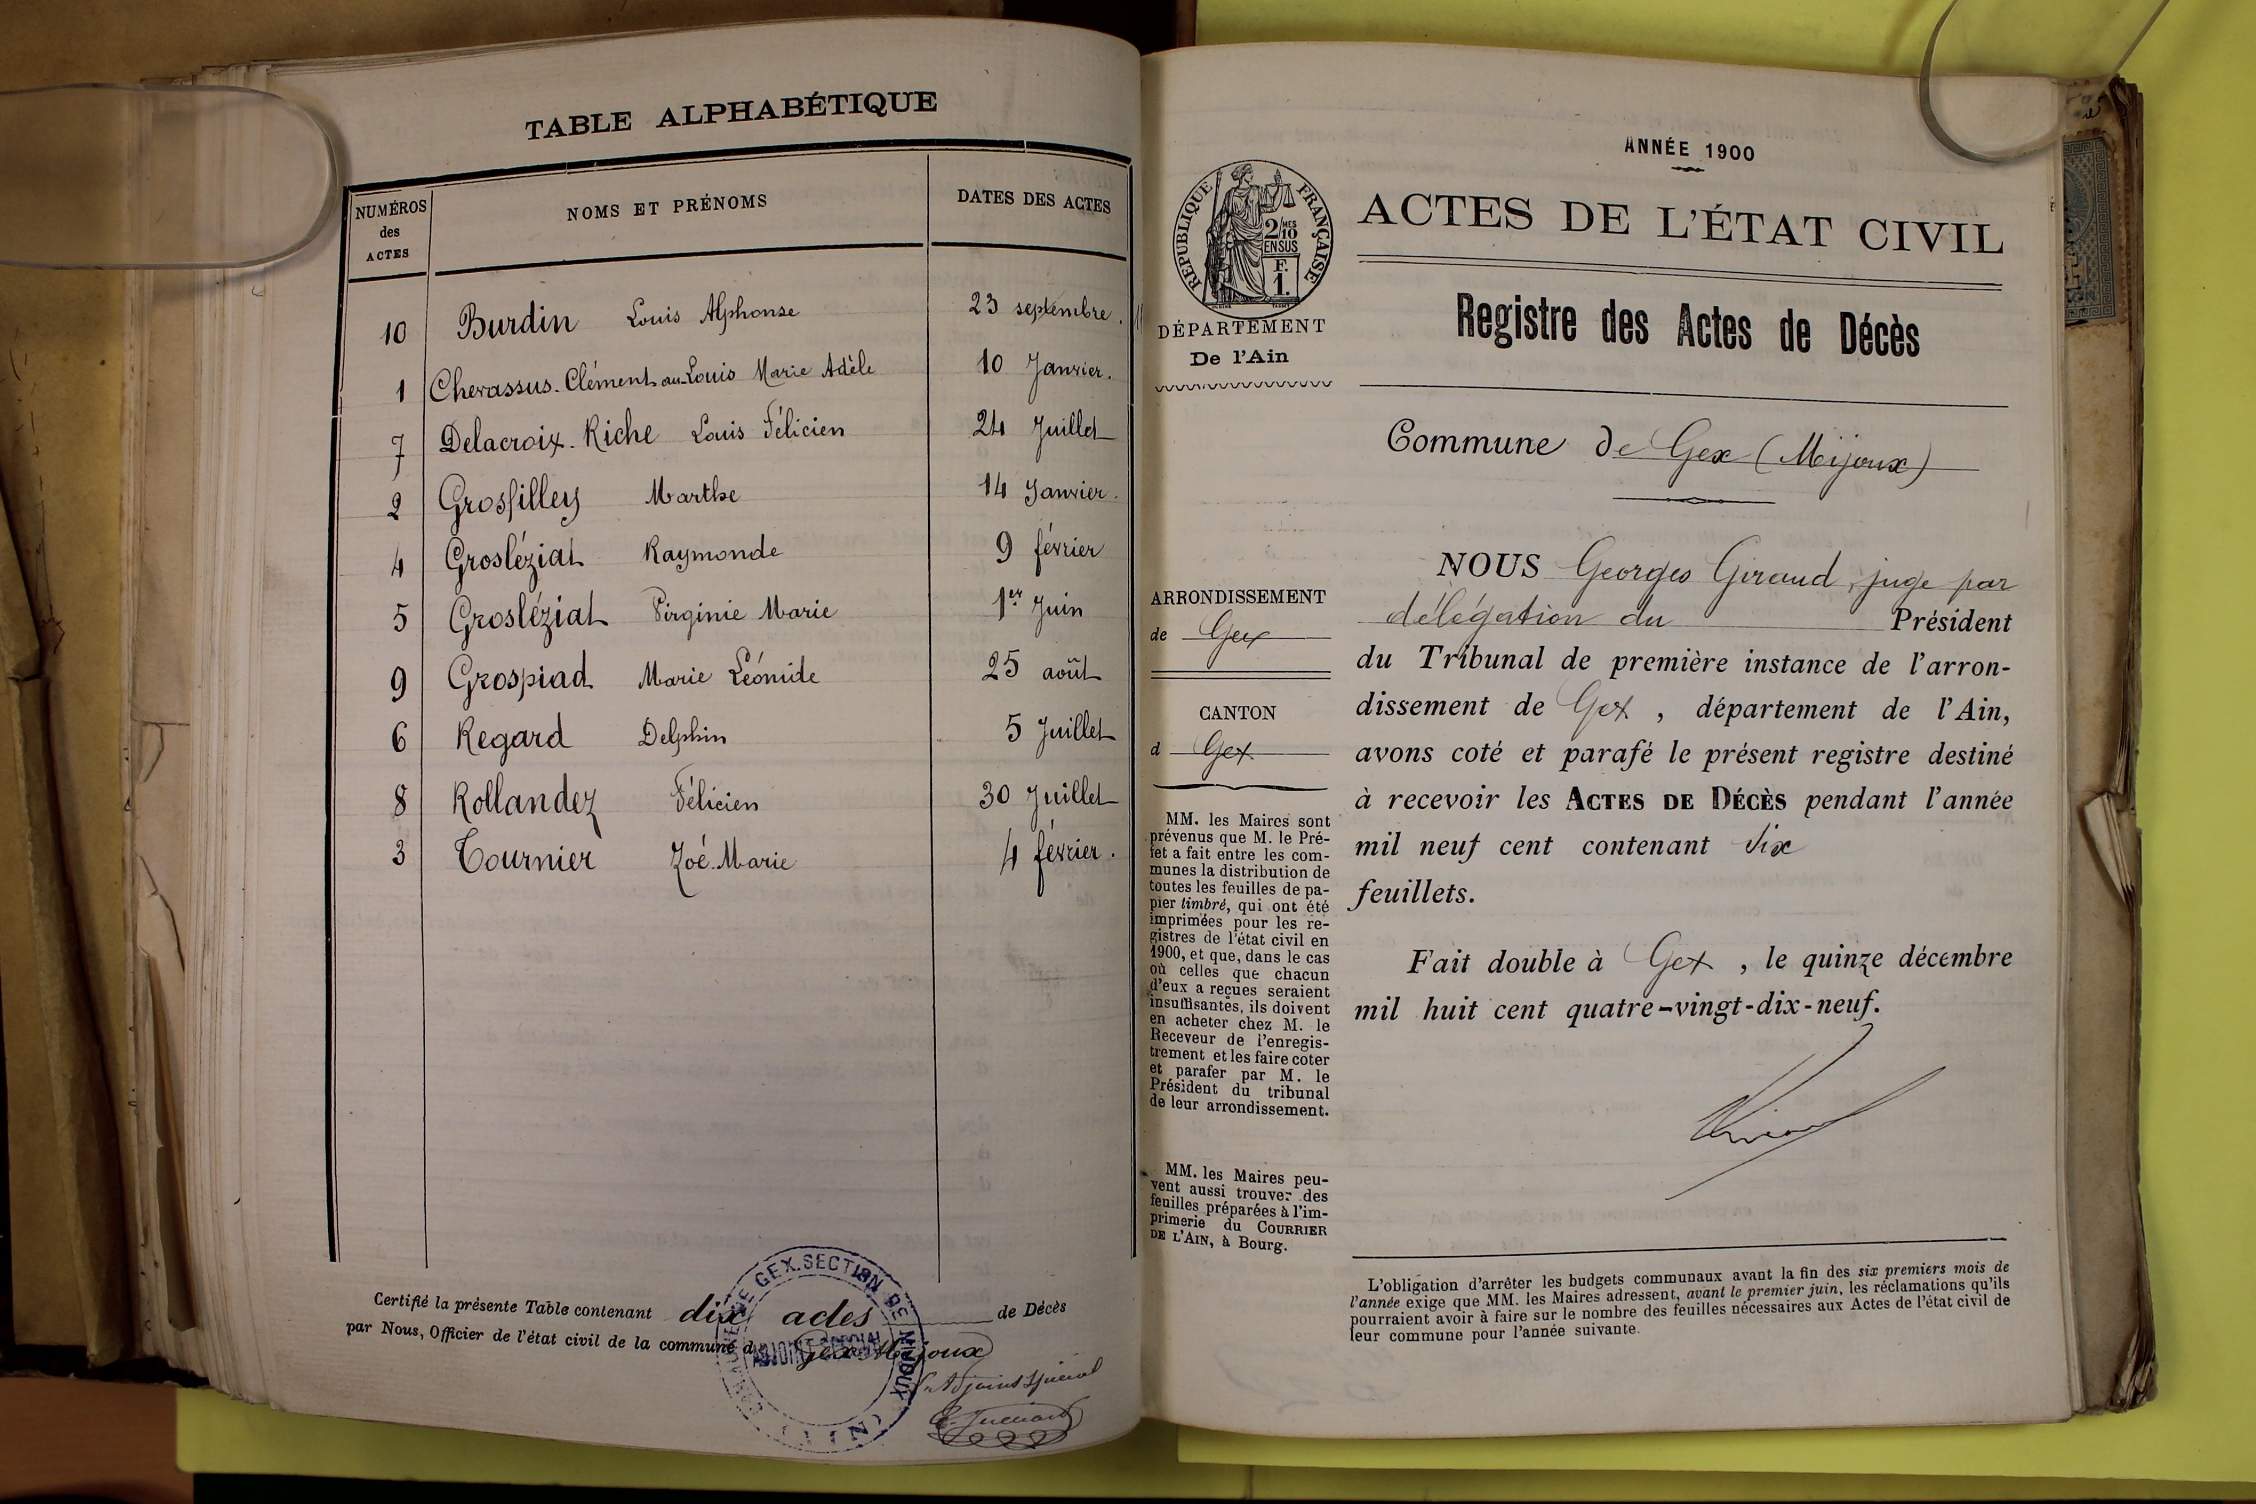 TABLE ALPHABÉTIQUE
NUMÉROS des ACTES NOMS ET PRÉNOMS DATES DES ACTES
10 Burdin Louis Alphonse 23 septembre.
1 Chevassus-Clément-au-Louis Marie Adèle 10 Janvier.
7 Delacroix-Riche Louis Félicien 24 Juillet
2 Grosfilley Marthe 14 Janvier.
4 Grosléziat Raymonde 9 février
5 Grosléziat Virginie Marie 1er Juin
9 Grospiad Marie Léonide 25 août
6 Regard Delphin 5 Juillet
8 Rollandez Félicien 30 Juillet
3 Tournier Zoé-Marie 4 février.
Certifié la présente Table contenant dix actes de Décès
par Nous, Officier de l'état civil de la commune d Gex-Mijoux
L'Adjoint Spécial
GEX. SECTION DE MIJOUX
ADJOINT SPÉCIAL
(AIN)
ANNÉE 1900
RÉPUBLIQUE FRANÇAISE
2/10 MES
EN SUS
F.
1.
DÉPARTEMENT
De l'Ain
ACTES DE L'ÉTAT CIVIL
Registre des Actes de Décès
Commune de Gex (Mijoux)
ARRONDISSEMENT
de Gex
CANTON
d Gex
MM. les Maires sont
prévenus que M. le Pré-
fet a fait entre les com-
munes la distribution de
toutes les feuilles de pa-
pier timbré, qui ont été
imprimées pour les re-
gistres de l'état civil en
1900, et que, dans le cas
où celles que chacun
d'eux a reçues seraient
insuffisantes, ils doivent
en acheter chez M. le
Receveur de l'enregis-
trement et les faire coter
et parafer par M. le
Président du tribunal
de leur arrondissement.
MM. les Maires peu-
vent aussi trouver des
feuilles préparées à l'im-
primerie du COURRIER
DE L'AIN, à Bourg.
NOUS Georges Giraud, juge par
délégation du Président
du Tribunal de première instance de l'arron-
dissement de Gex, département de l'Ain,
avons coté et parafé le présent registre destiné
à recevoir les ACTES DE DÉCÈS pendant l'année
mil neuf cent contenant dix
feuillets.
Fait double à Gex, le quinze décembre
mil huit cent quatre-vingt-dix-neuf.
L'obligation d'arrêter les budgets communaux avant la fin des six premiers mois de
l'année exige que MM. les Maires adressent, avant le premier juin, les réclamations qu'ils
pourraient avoir à faire sur le nombre des feuilles nécessaires aux Actes de l'état civil de
leur commune pour l'année suivante.